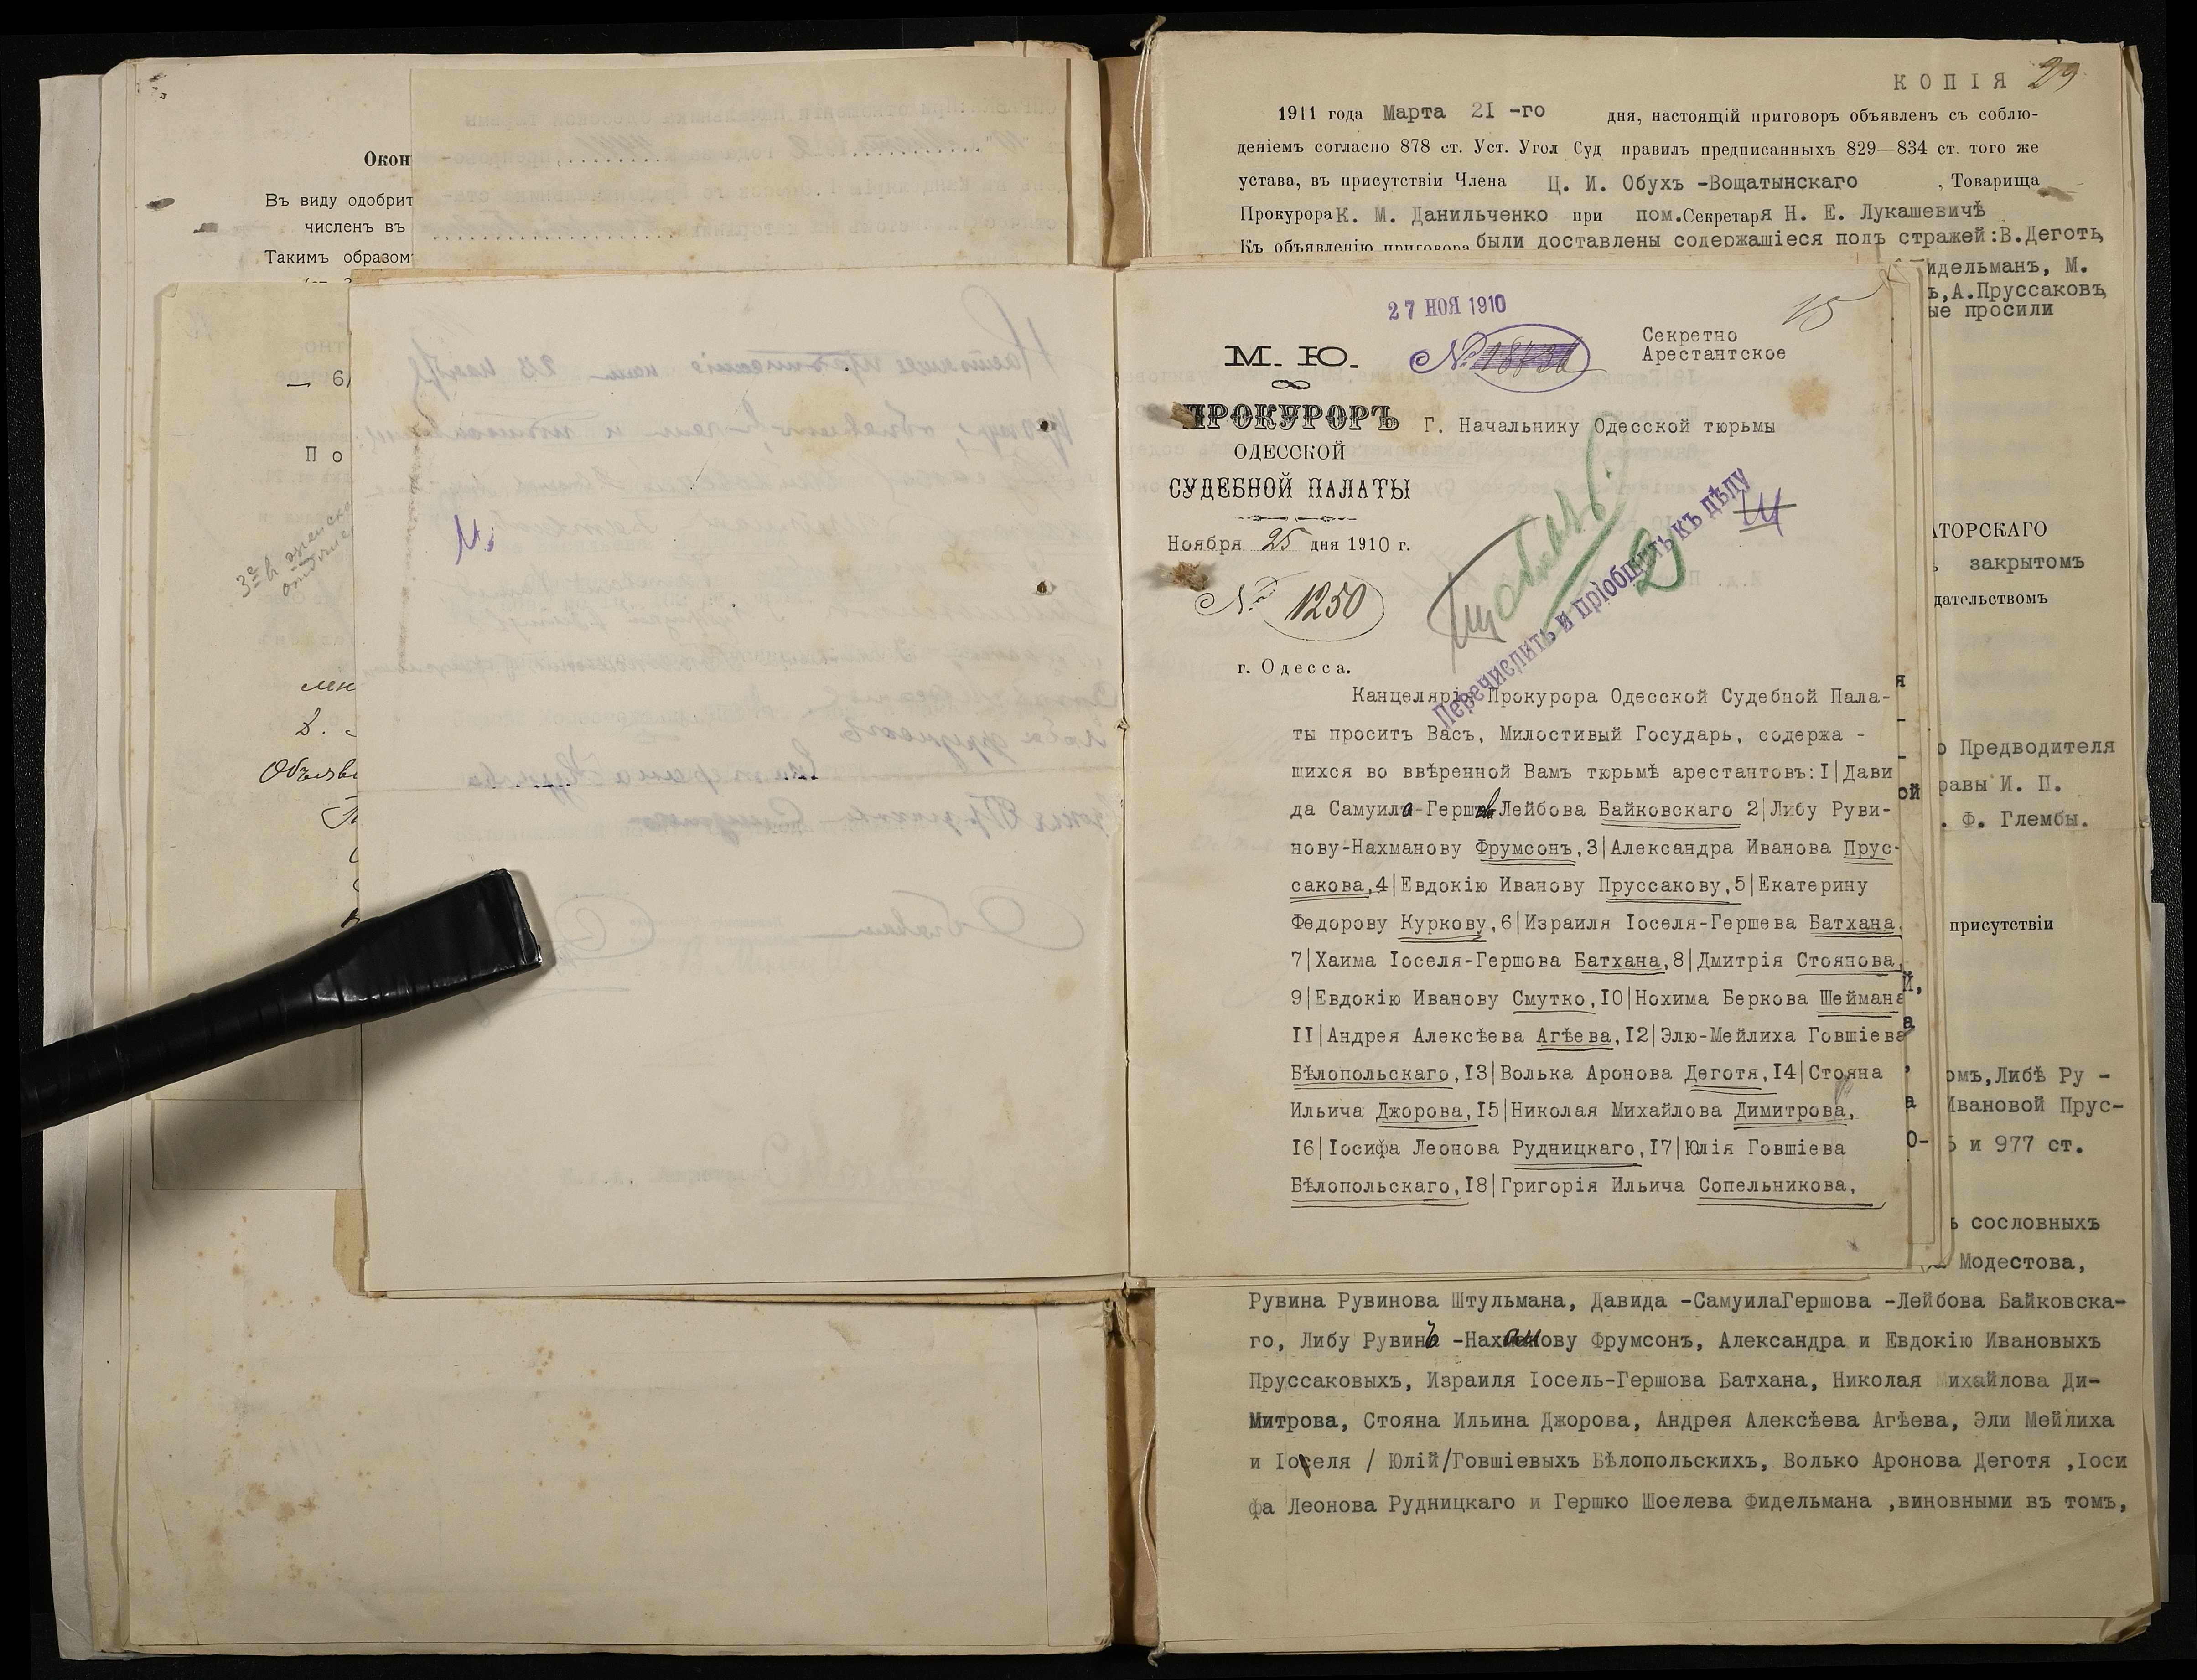 Окон
Въ виду одобрит
численъ въ
Такимъ образом
— 6
П о
3е въ
мн
Объявле
М.
КОПІЯ 29
1911 года Марта 21 -го дня, настоящій приговоръ объявленъ съ соблю-
деніемъ согласно 878 ст. Уст. Угол Суд правилъ предписанныхъ 829—834 ст. того же
устава, въ присутствіи Члена Ц. И. Обухъ -Вощатынскаго , Товарища
Прокурора К. М. Данильченко при пом.Секретаря Н. Е. Лукашевичѣ
Къ объявленію приговора были доставлены содержащіеся подъ стражей:В.Деготь,
идельманъ, М.
ъ,А.Пруссаковъ,
ые просили
27 НОЯ 1910
15
М. Ю.
№ 18731
Секретно
Арестантское
ПРОКУРОРЪ
Г. Начальнику Одесской тюрьмы
ОДЕССКОЙ
СУДЕБНОЙ ПАЛАТЫ
Ноября 25 дня 1910 г.
№ 1250
г. Одесса.
Перечислить и пріобщить къ дѣлу
Канцелярія Прокурора Одесской Судебной Пала-
ты проситъ Васъ, Милостивый Государь, содержа -
щихся во ввѣренной Вамъ тюрьмѣ арестантовъ:I|Дави
да Самуила-Гершова Лейбова Байковскаго 2|Либу Руви-
нову-Нахманову Фрумсонъ,3|Александра Иванова Прус-
сакова,4|Евдокію Иванову Пруссакову,5|Екатерину
Федорову Куркову,6|Израиля Іоселя-Гершева Батхана,
7|Хаима Іоселя-Гершова Батхана,8|Дмитрія Стоянова,
9|Евдокію Иванову Смутко,I0|Нохима Беркова Шеймана
II|Андрея Алексѣева Агѣева,I2|Элю-Мейлиха Говшіева
Бѣлопольскаго,I3|Волька Аронова Деготя,I4|Стояна
Ильича Джорова,I5|Николая Михайлова Димитрова,
I6|Іосифа Леонова Рудницкаго,I7|Юлія Говшіева
Бѣлопольскаго,I8|Григорія Ильича Сопельникова,
АТОРСКАГО
закрытомъ
дательствомъ
о Предводителя
равы И. П.
. Ф. Глембы.
присутствіи
омъ,Либѣ Ру -
Ивановой Прус-
5 и 977 ст.
ъ сословныхъ
Модестова,
Рувина Рувинова Штульмана, Давида -СамуилаГершова -Лейбова Байковска-
го, Либу Рувинъ -Нахманову Фрумсонъ, Александра и Евдокію Ивановыхъ
Пруссаковыхъ, Израиля Іосель-Гершова Батхана, Николая Михайлова Ди-
Митрова, Стояна Ильина Джорова, Андрея Алексѣева Агѣева, Эли Мейлиха
и Іоселя / Юлій/Говшіевыхъ Бѣлопольскихъ, Волько Аронова Деготя ,Іоси
фа Леонова Рудницкаго и Гершко Шоелева Фидельмана ,виновными въ томъ,